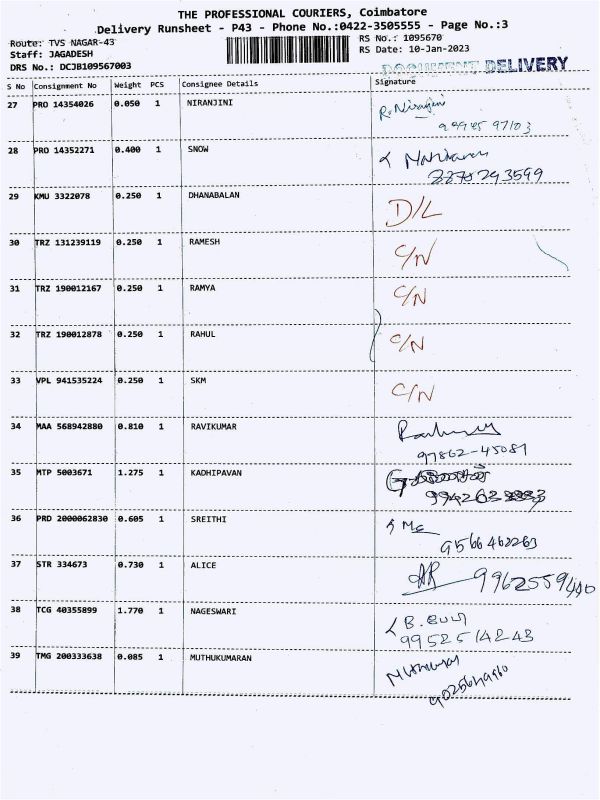 THE PROFESSIONAL COURIERS, Coimbatore
Delivery Runsheet - P43 - Phone No.:0422-3505555 - Page No.:3
Route: TVS NAGAR-43 RS No.: 1095670
Staff: JAGADESH RS Date: 10-Jan-2023
DRS No.: DCJB109567003 DOCUMENT DELIVERY
S No Consignment No Weight PCS Consignee Details Signature
27 PRO 14354026 0.050 1 NIRANJINI R. Niranjini
28 PRO 14352271 0.400 1 SNOW
29 KMU 3322078 0.250 1 DHANABALAN D/L
30 TRZ 131239119 0.250 1 RAMESH C/N
31 TRZ 190012167 0.250 1 RAMYA C/N
32 TRZ 190012878 0.250 1 RAHUL C/N
33 VPL 941535224 0.250 1 SKM C/N
34 MAA 568942880 0.810 1 RAVIKUMAR
97862-45081
35 MTP 5003671 1.275 1 KADHIPAVAN
36 PRD 2000062830 0.605 1 SREITHI
9566462263
37 STR 334673 0.730 1 ALICE AR
38 TCG 40355899 1.770 1 NAGESWARI B.
9952514243
39 TMG 200333638 0.085 1 MUTHUKUMARAN